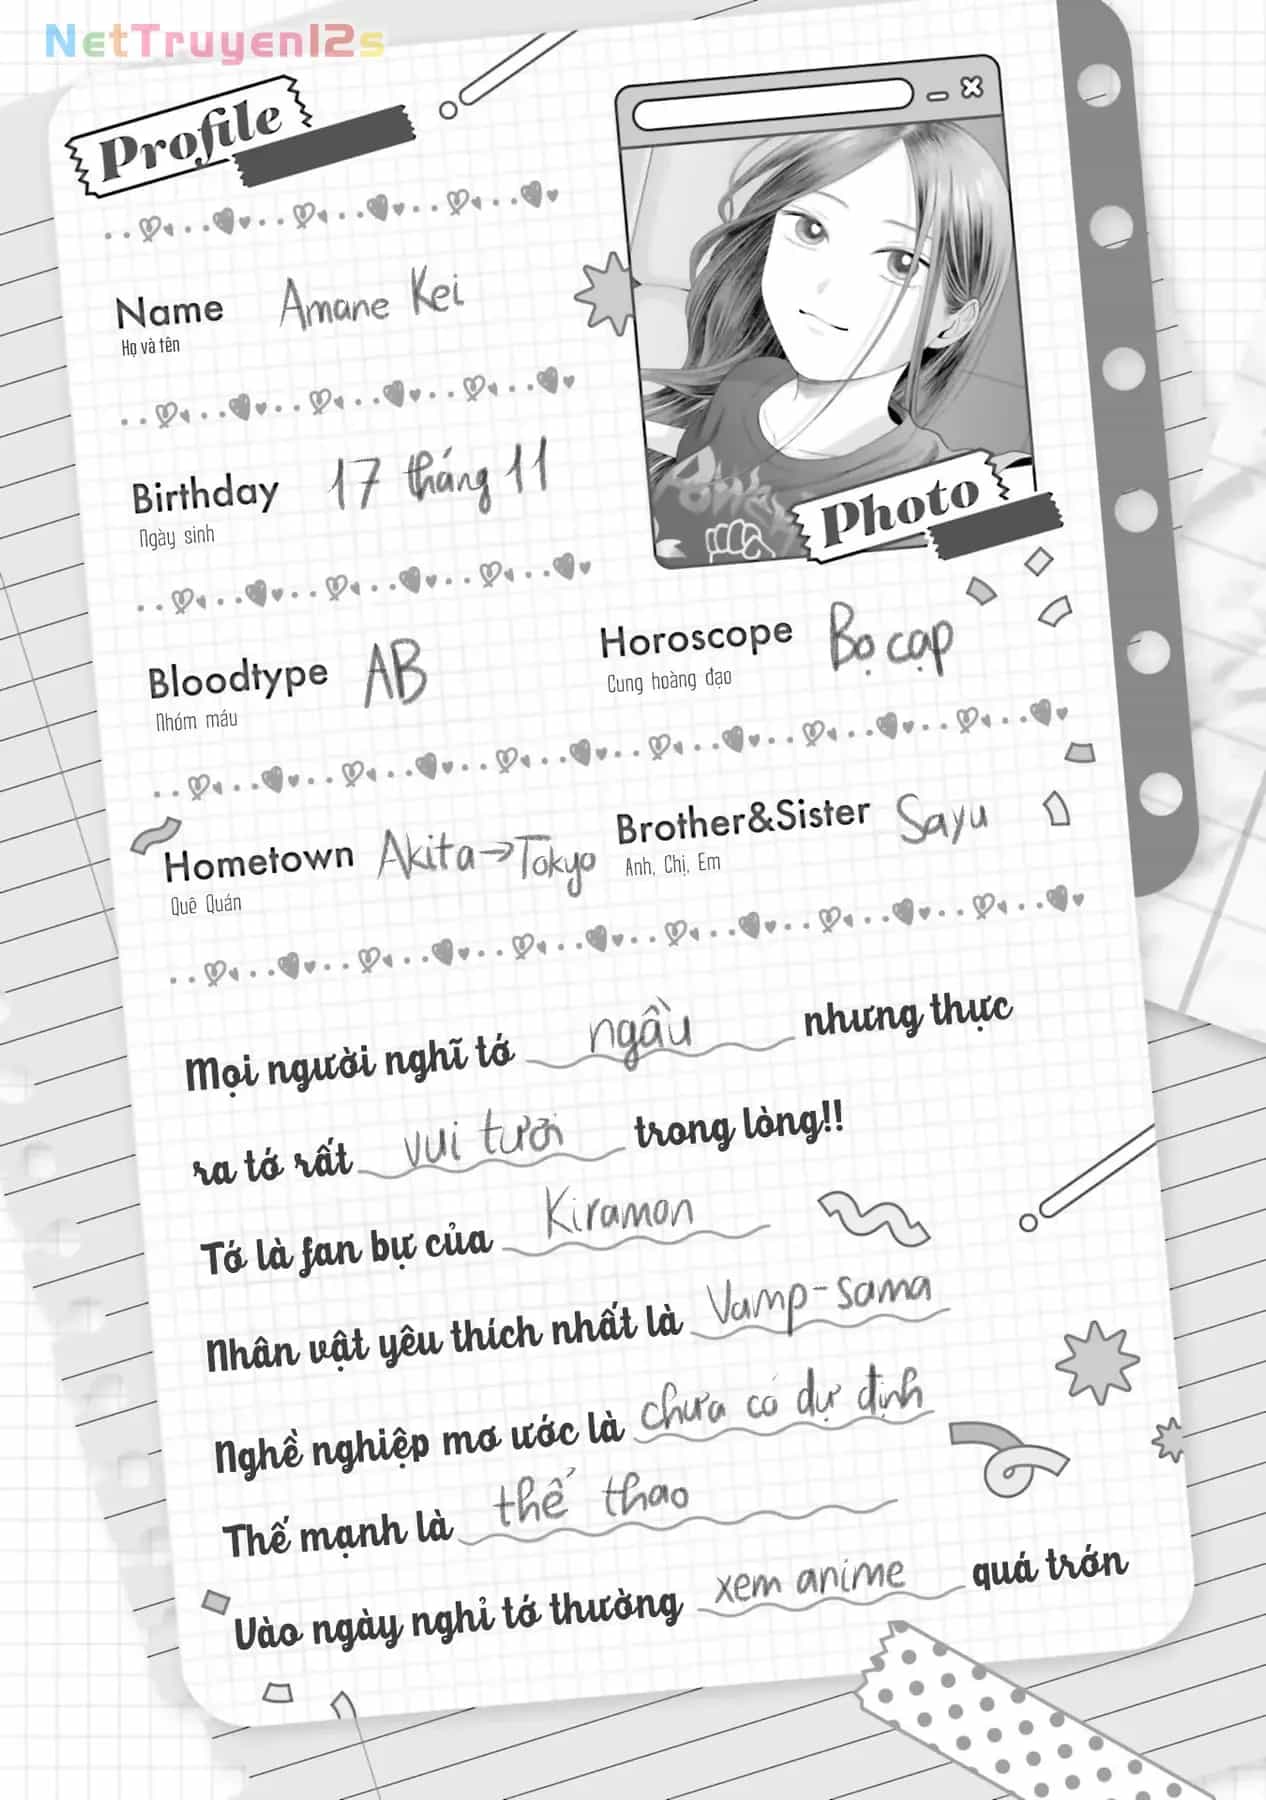 NetTruyen12s
Profile
Name Amane Kei
Họ và tên
Birthday 17 tháng 11
Ngày sinh
Photo
Bloodtype AB
Nhóm máu
Horoscope Bọ cạp
Cung hoàng đạo
Hometown Akita→Tokyo
Quê Quán
Brother&Sister Sayu
Anh, Chị, Em
Mọi người nghĩ tớ ngầu nhưng thực
ra tớ rất vui tươi trong lòng!!
Tớ là fan bự của Kiramon
Nhân vật yêu thích nhất là Vamp-sama
Nghề nghiệp mơ ước là chưa có dự định
Thế mạnh là thể thao
Vào ngày nghỉ tớ thường xem anime quá trớn